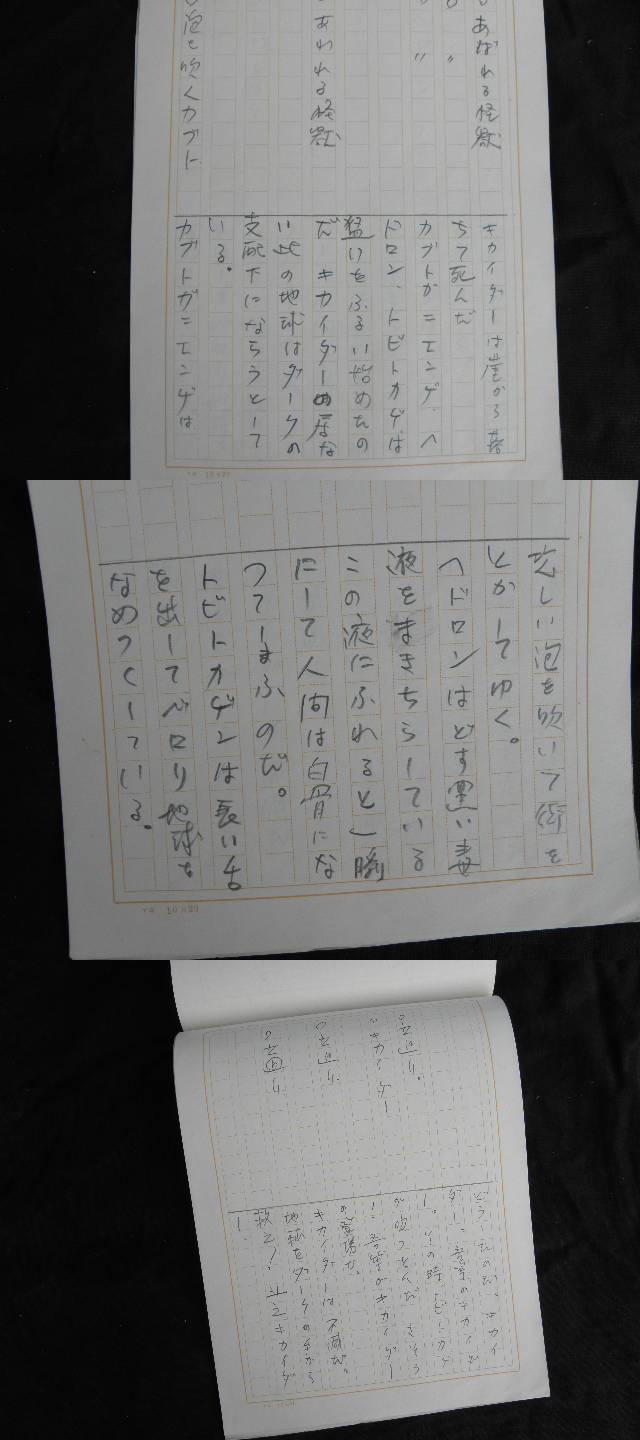 ○あばれる怪獣
○ 〃
〃
○あわれる怪獣
○泡を吹くカブト
キカイダーは崖から落
ちて死んだ
カブトガニエンゲ、ヘ
ドロン、トビトカゲは
猛いをふるい始めたの
だ キカイダーの居な
い此の地球はダークの
支配下になろうとして
いる。
カブトガニエンゲは
をしい泡を吹いて街を
とかしてゆく。
ヘドロンはどす黒い毒
液をまきちらしている
この液にふれると一瞬
にして人間は白骨にな
ってしまふのだ。
トビトカゲンは長い舌
を出してペロリ地球を
なめつくしている。
○立廻り。
○キカイダー
○立廻り
○立廻り
どうしたのだ、キカイ
ダー、
の時、
が吹っとんだ
キカイダー
の登場だ。
キカイダーは不滅だ。
地球をダークの手から
救え！ キカイダ
ー